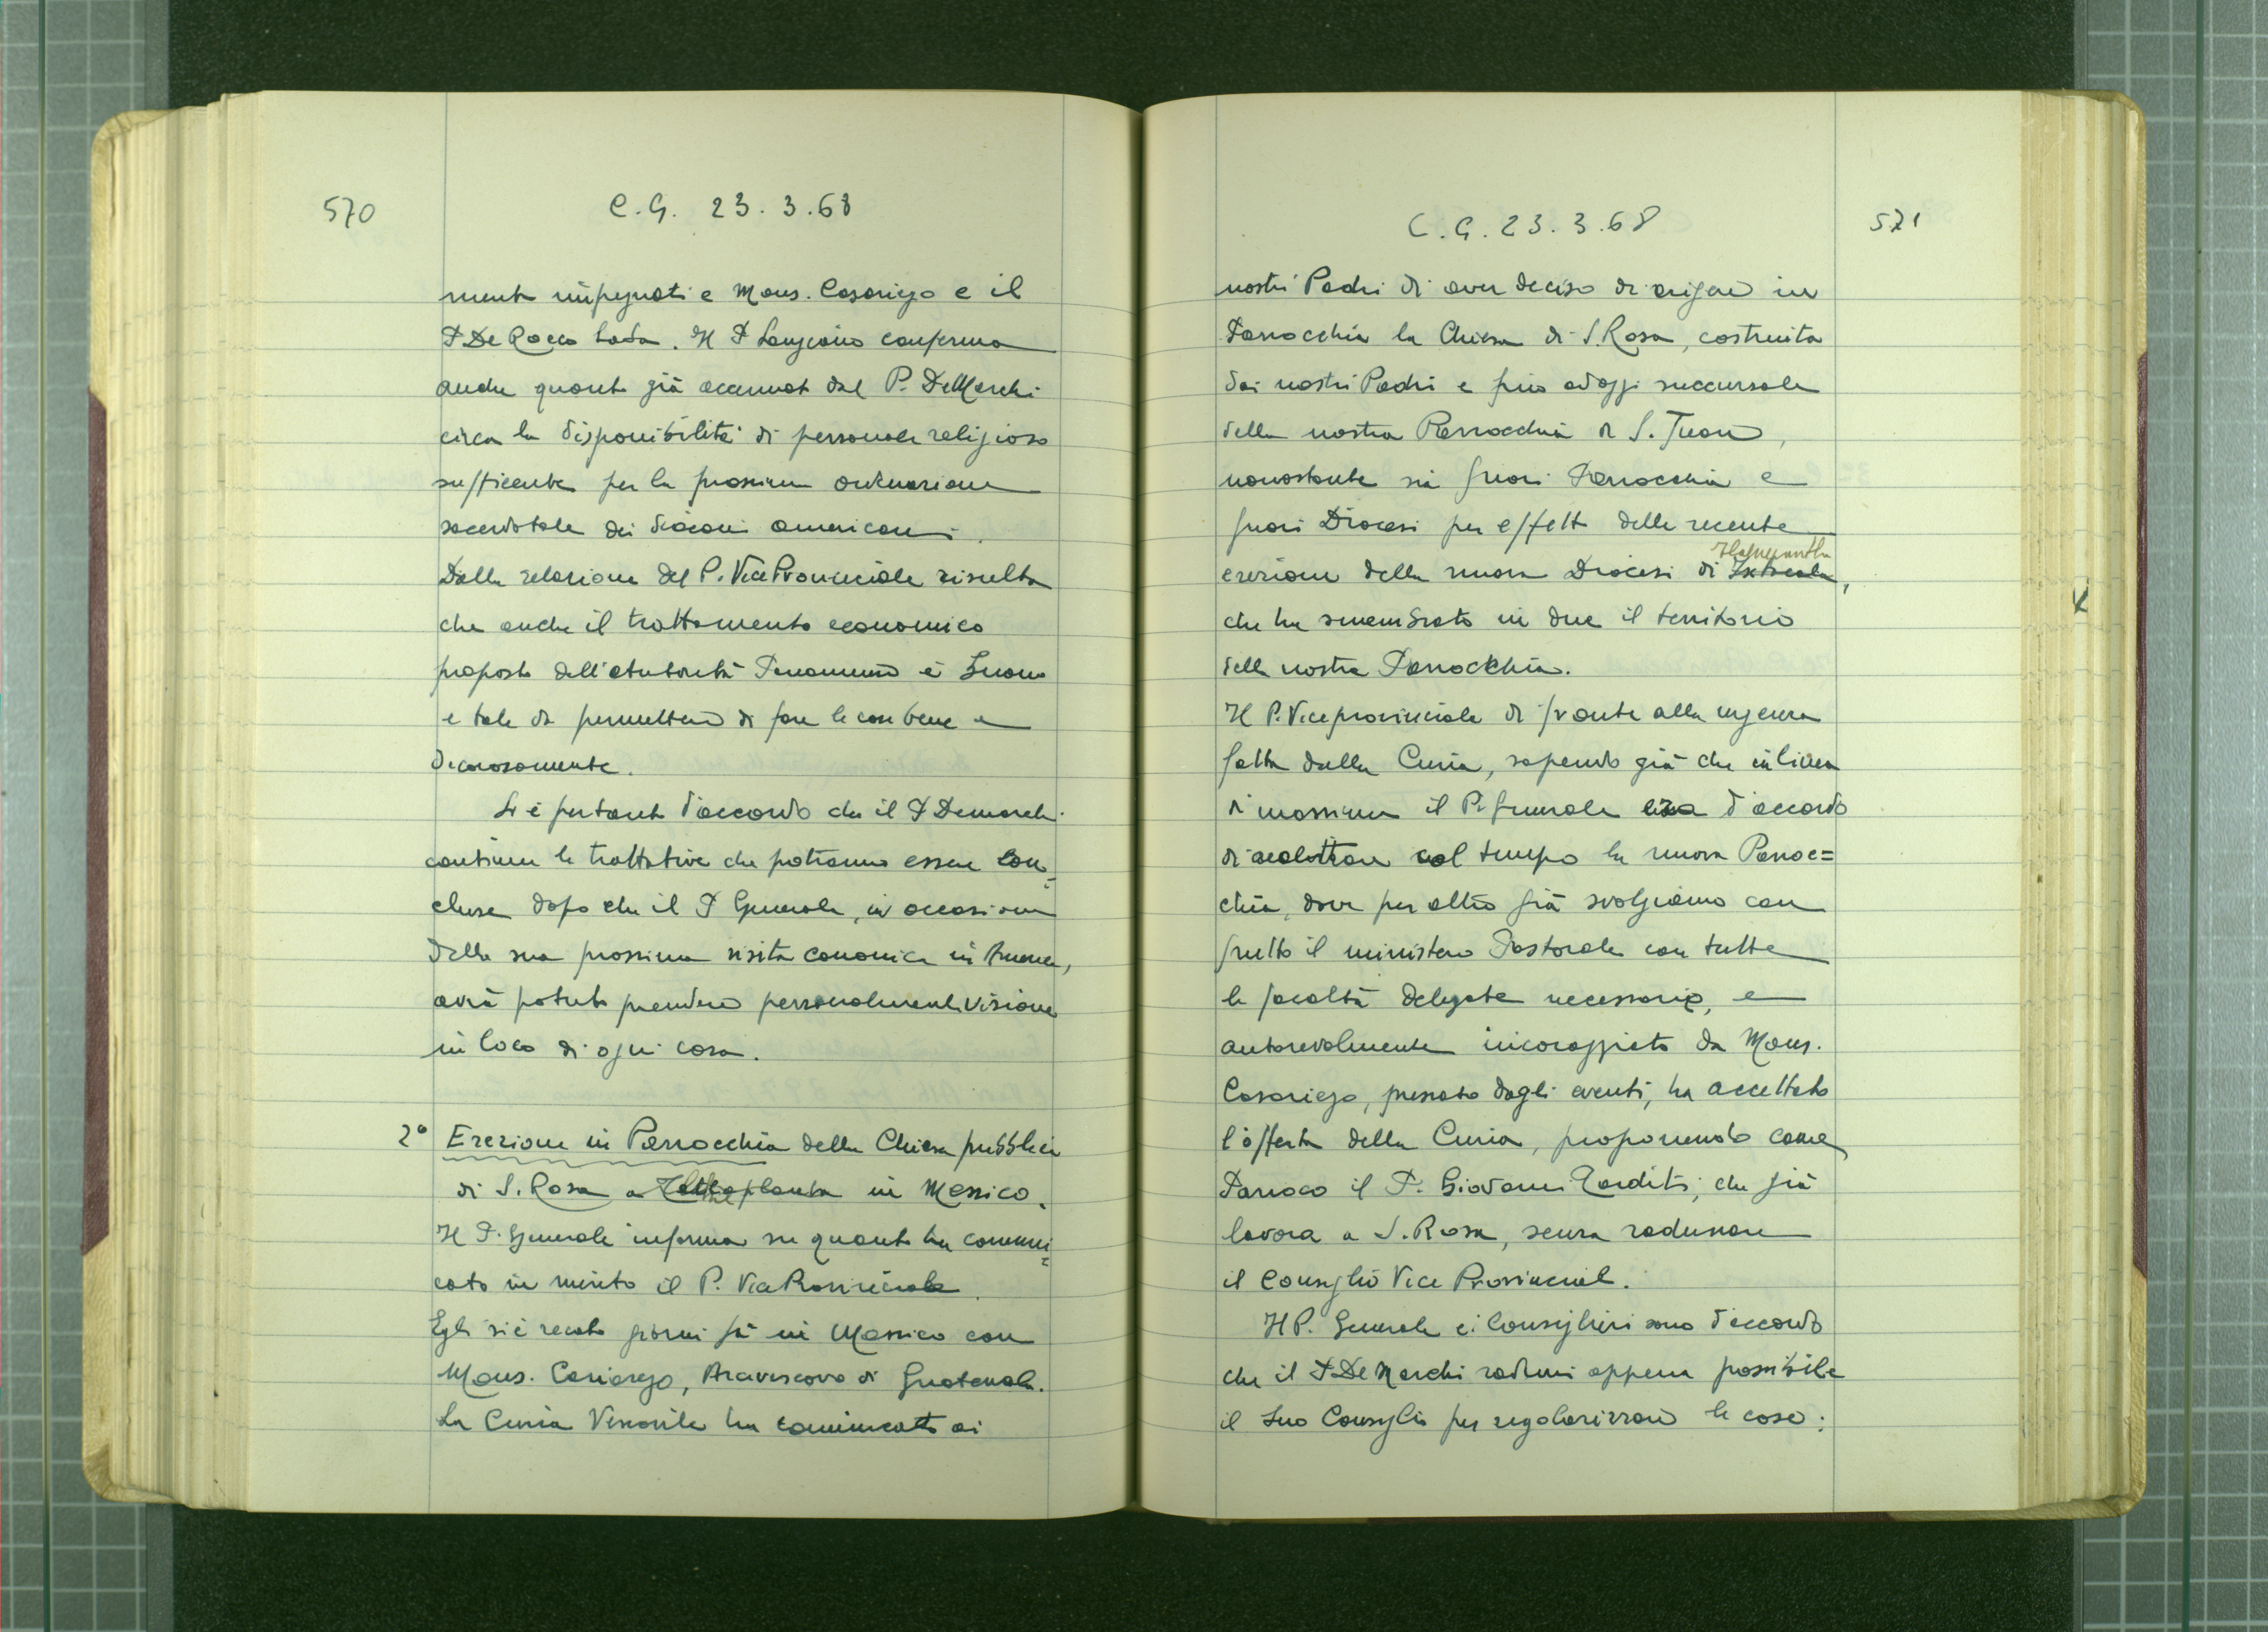 570
C.G. 23.3.68
mente impegnati e Mons. Casariego e il
P De Rocco Lada. Il P Langiano conferma
anche quanto già accennato dal P. DeMarchi
circa la disponibilità di personale religioso
sufficente per la prossima ordinazione
sacerdotale dei diaconi americani.
Dalla relazione del P. ViceProvinciale risulta
che anche il trattamento economico
proposto dall'autorità è buono
e tale da permettere di fare le cose bene e
decorosamente.
Si è pertanto d'accordo che il P Demarchi
continui le trattative che potranno essere con=
cluse dopo che il P Generale, in occasione
della sua prossima visita canonica in America,
avrà potuto prendere personalmente visione
in loco di ogni cosa.
2° Erezione in Parrocchia della Chiesa pubblica
di S. Rosa a in Messico.
Il P. Generale informa su quanto ha comuni=
cato in merito il P. ViceProvinciale.
Egli si è recato giorni fà in Messico con
Mons. Casariego, Arcivescovo di Guatemala.
La Curia Vescovile ha comunicato ai
C.G. 23.3.68
571
nostri Padri di aver deciso di erigere in
Parrocchia la Chiesa di S. Rosa, costruita
dai nostri Padri e fino ad oggi succursale
della nostra Parrocchia di S. Juan,
nonostante sia fuori Parrocchia e
fuori Diocesi per effetto della recente
Tlalnepantla
erezione della nuova Diocesi di,
che ha smembrato in due il territorio
della nostra Parrocchia.
Il P. Viceprovinciale di fronte alla urgenza
fatta dalla Curia, sapendo già che in linea
di massima il P. Generale era d'accordo
di accettare col tempo la nuova Parroc=
chia, dove per altro già svolgiamo con
frutto il ministero Pastorale con tutte
le facoltà delegate necessarie, e
autorevolmente incoraggiato da Mons.
Casariego, pressato dagli eventi, ha accettato
l'offerta della Curia, proponendo come
Parroco il P. Giovanni Zarditi, che già
lavora a S. Rosa, senza radunare
il Consiglio Vice Provincial.
Il P. Generale e i Consiglieri sono d'accordo
che il P De Marchi raduni appena possibile
il suo Consiglio per regolarizzare le cose: